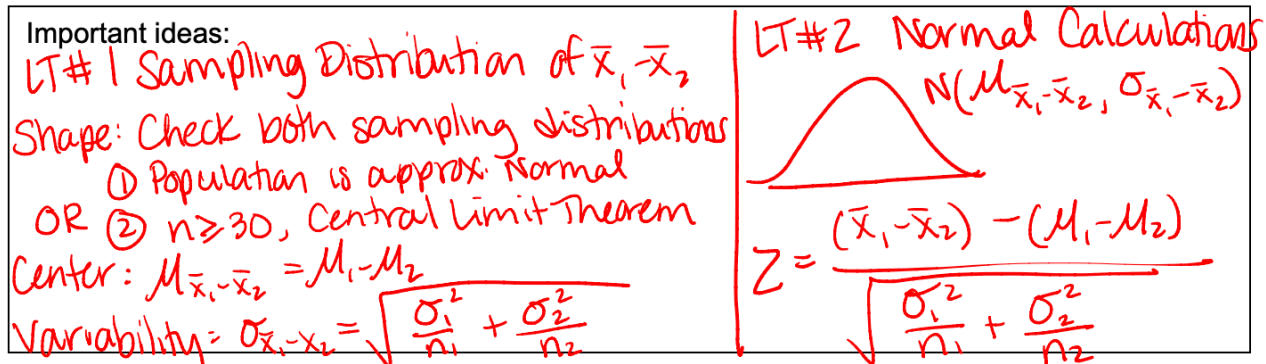 Important ideas:
LT#1 Sampling Distribution of x̄₁-x̄₂
Shape: Check both sampling distributions
① Population is approx. Normal
OR ② n≥30, Central Limit Theorem
Center: μx̄₁-x̄₂ = μ₁-μ₂
Variability: σx̄₁-x₂ = √(σ₁²/n₁ + σ₂²/n₂)
LT#2 Normal Calculations
N(μx̄₁-x̄₂, σx̄₁-x̄₂)
Z = ((x̄₁-x̄₂) - (μ₁-μ₂)) / √(σ₁²/n₁ + σ₂²/n₂)